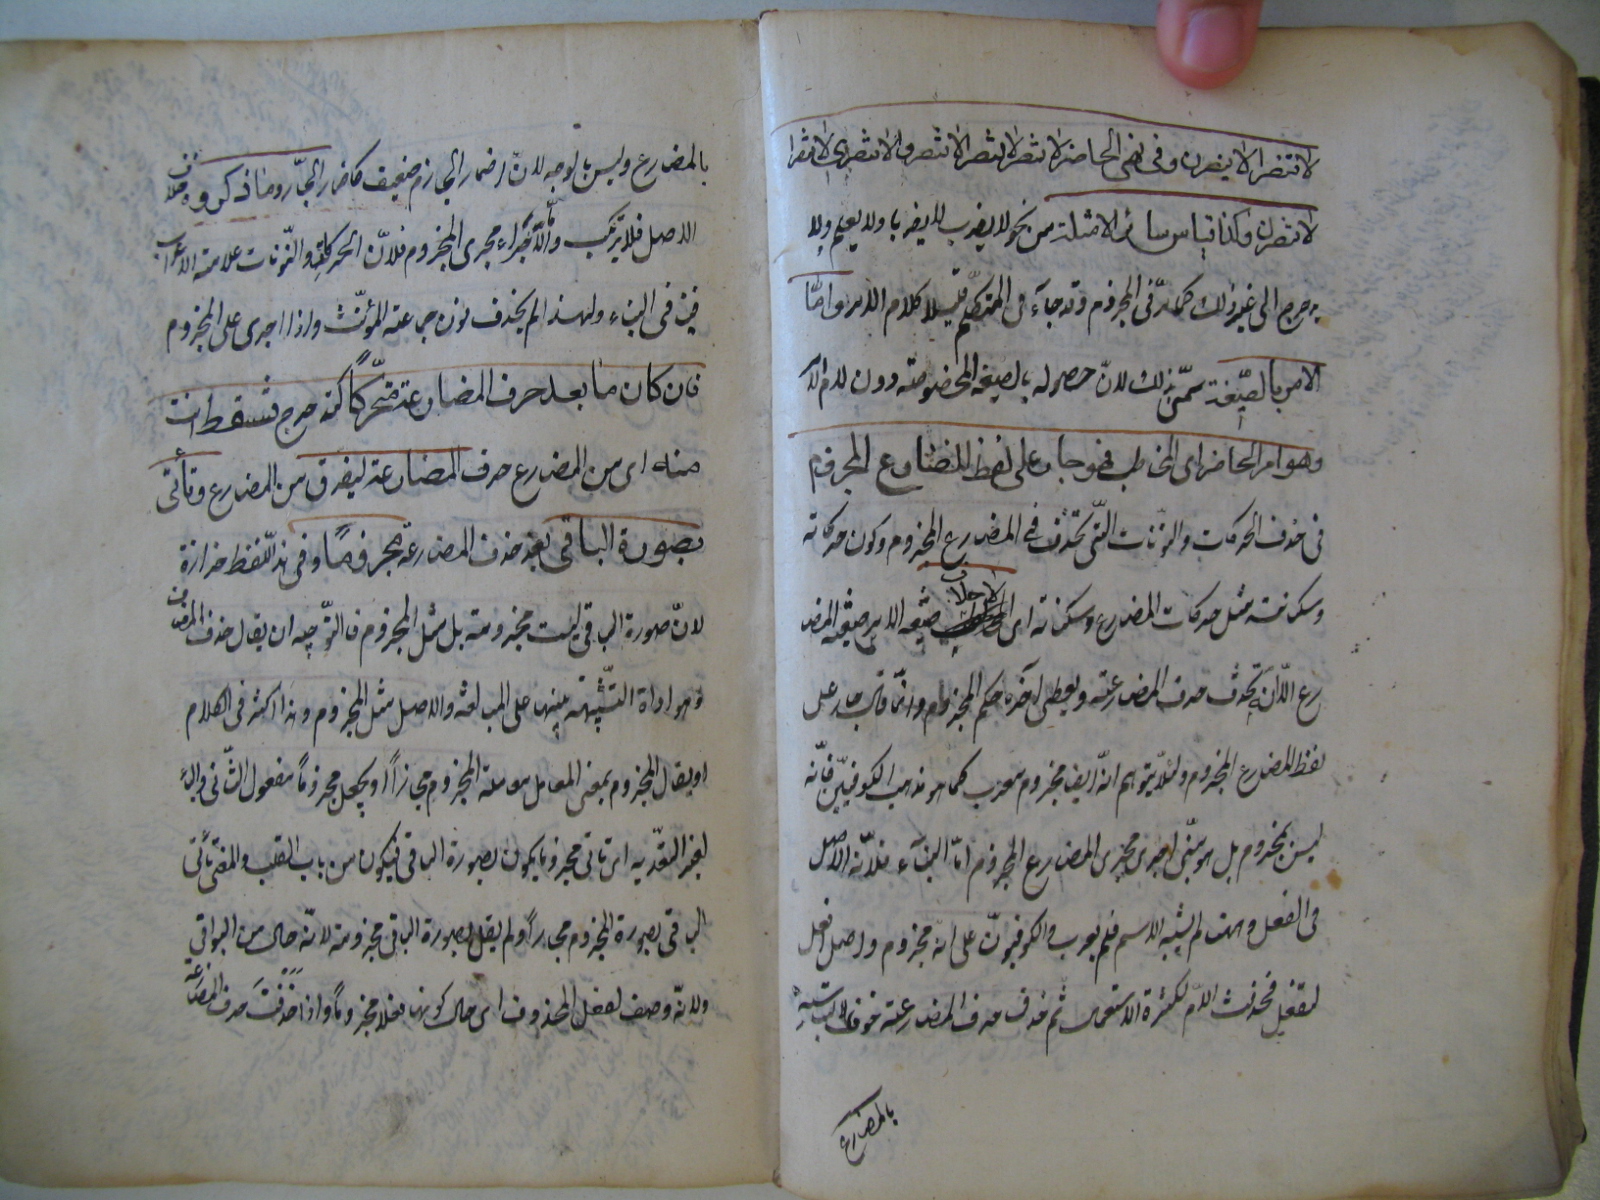 لا تنصرا لا ينصرن وفى نهى الحاضر لا تنصر لا تنصرا لا تنصروا لا تنصرى لا تنصرا
لا تنصرن وكذا قياس سائر الامثلة من نحو لا يضرب لا يضربا ولا يعلم ولا
يدحرج الى غير ذلك كما مرّ فى المجزوم وقد جآء فى المتكلّم قليلا كلام الامر وامّا
الامر بالصيغة سمّى بذلك لانّ حصوله بالصيغة المخصوصة دون لام الا
وهو امر الحاضر اى المخاطب فهو جار على لفظ المضارع المجزوم
فى حذف الحركات والنونات التى تحذف فى المضارع المجزوم وكون حركاته
وسكناته مثل حركات المضارع وسكناته اى لا يخالف صيغة الامر صيغة المضا
رع الّا ان تحذف حرف المضارعة ويعطى آخره حكم المجزوم وانّما قال جار على
لفظ المضارع المجزوم ولئلا يتوهم انّه ايضا مجزوم معرب كما هو مذهب الكوفيّين فانّه
ليس بمجزوم بل هو مبنىّ اجرى مجرى المضارع المجزوم امّا البناء فلانّه الاصل
فى الفعل وهذا لم يشبه الاسم فلم يعرب والكوفيون على انه مجزوم واصل افعل
لتفعل فحذفت اللام لكثرة الاستعمال ثم حذف حرف المضارعة خوف الالتباس
بالمضارع
بالمضارع وليس بالوجه لانّ اضمار الجازم ضعيف كاضمار الجارّ وما ذكروه خلاف
الاصل فلا يرتكب وامّا الاجراء مجرى المجزوم فلانّ الحركات والنّونات علامة الاعراب
فينافى البناء ولهذا لم يحذف نون جماعة المؤنّث واذا اجرى على المجزوم
فان كان ما بعد حرف المضارعة متحرّكًا كتدحرج فتسقط انت
منه اى من المضارع حرف المضارعة ليفرق من المضارع وتأتى
بصورة الباقى بعد حذف المضارعة مجزومًا وفى هذا اللّفظ حزازة
لانّ صورة الباقى ليست مجزومة بل مثل المجزوم فالتّوجيه ان يقال حذف المضاف
وهو اداة التّشبيه تنبيها على المبالغة والاصل مثل المجزوم وهذا كثير فى الكلام
او يقال المجزوم بمعنى المعامل معاملة المجزوم مجازاً او يجعل مجزوماً مفعول الثّانى والباء
لغير التعدية اى تأتى مجزوما يكون بصورة الباقى فيكون من باب القلب والمعنى تأتى
الباقى بصورة المجزوم مجازاً ولم يقل بصورة الباقى مجزومة لانّه حال من الباقى
ولانّه وصف لفعل المحذوف اى حال كونها فعلا مجزوماً واذا حذفت حرف المضارعة